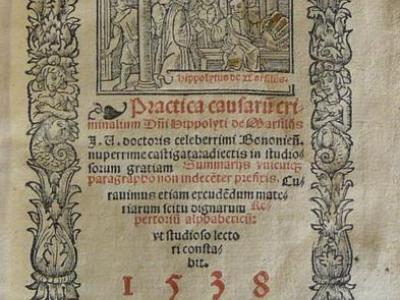 Hippolytus de Marsilijs.
Practica causarū cri
minalium Dñi Hippolyti de Marsilijs
J. U. doctoris celeberrimi Bononieñ.
nuperrime castigata: adiectis in studio
sorum gratiam Summarijs vnicuiq;
paragrapho non indecēter prefixis. Cu
rauimus etiam excudēdum mate
riarum scitu dignarum Re
pertoriū alphabeticū:
vt studioso lecto
ri consta
bit.
1538